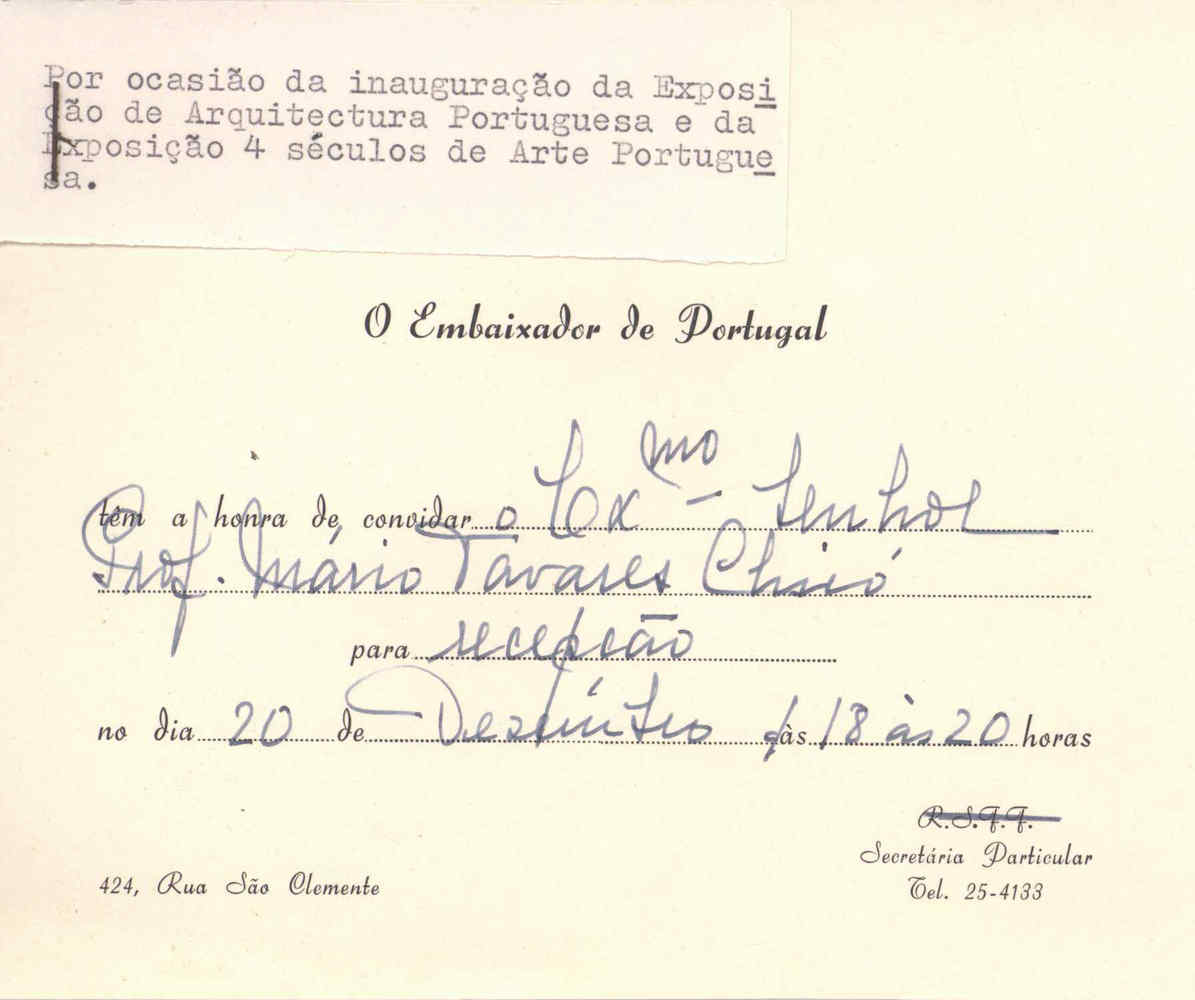 Por ocasião da inauguração da Exposi
ção de Arquitectura Portuguesa e da
Exposição 4 séculos de Arte Portugue
sa.
O Embaixador de Portugal
têm a honra de convidar o Exmo Senhor
Prof. Mário Tavares Chicó
para recepção
no dia 20 de Dezembro às 18 às 20 horas
R.S.F.F.
Secretária Particular
424, Rua São Clemente
Tel. 25-4133